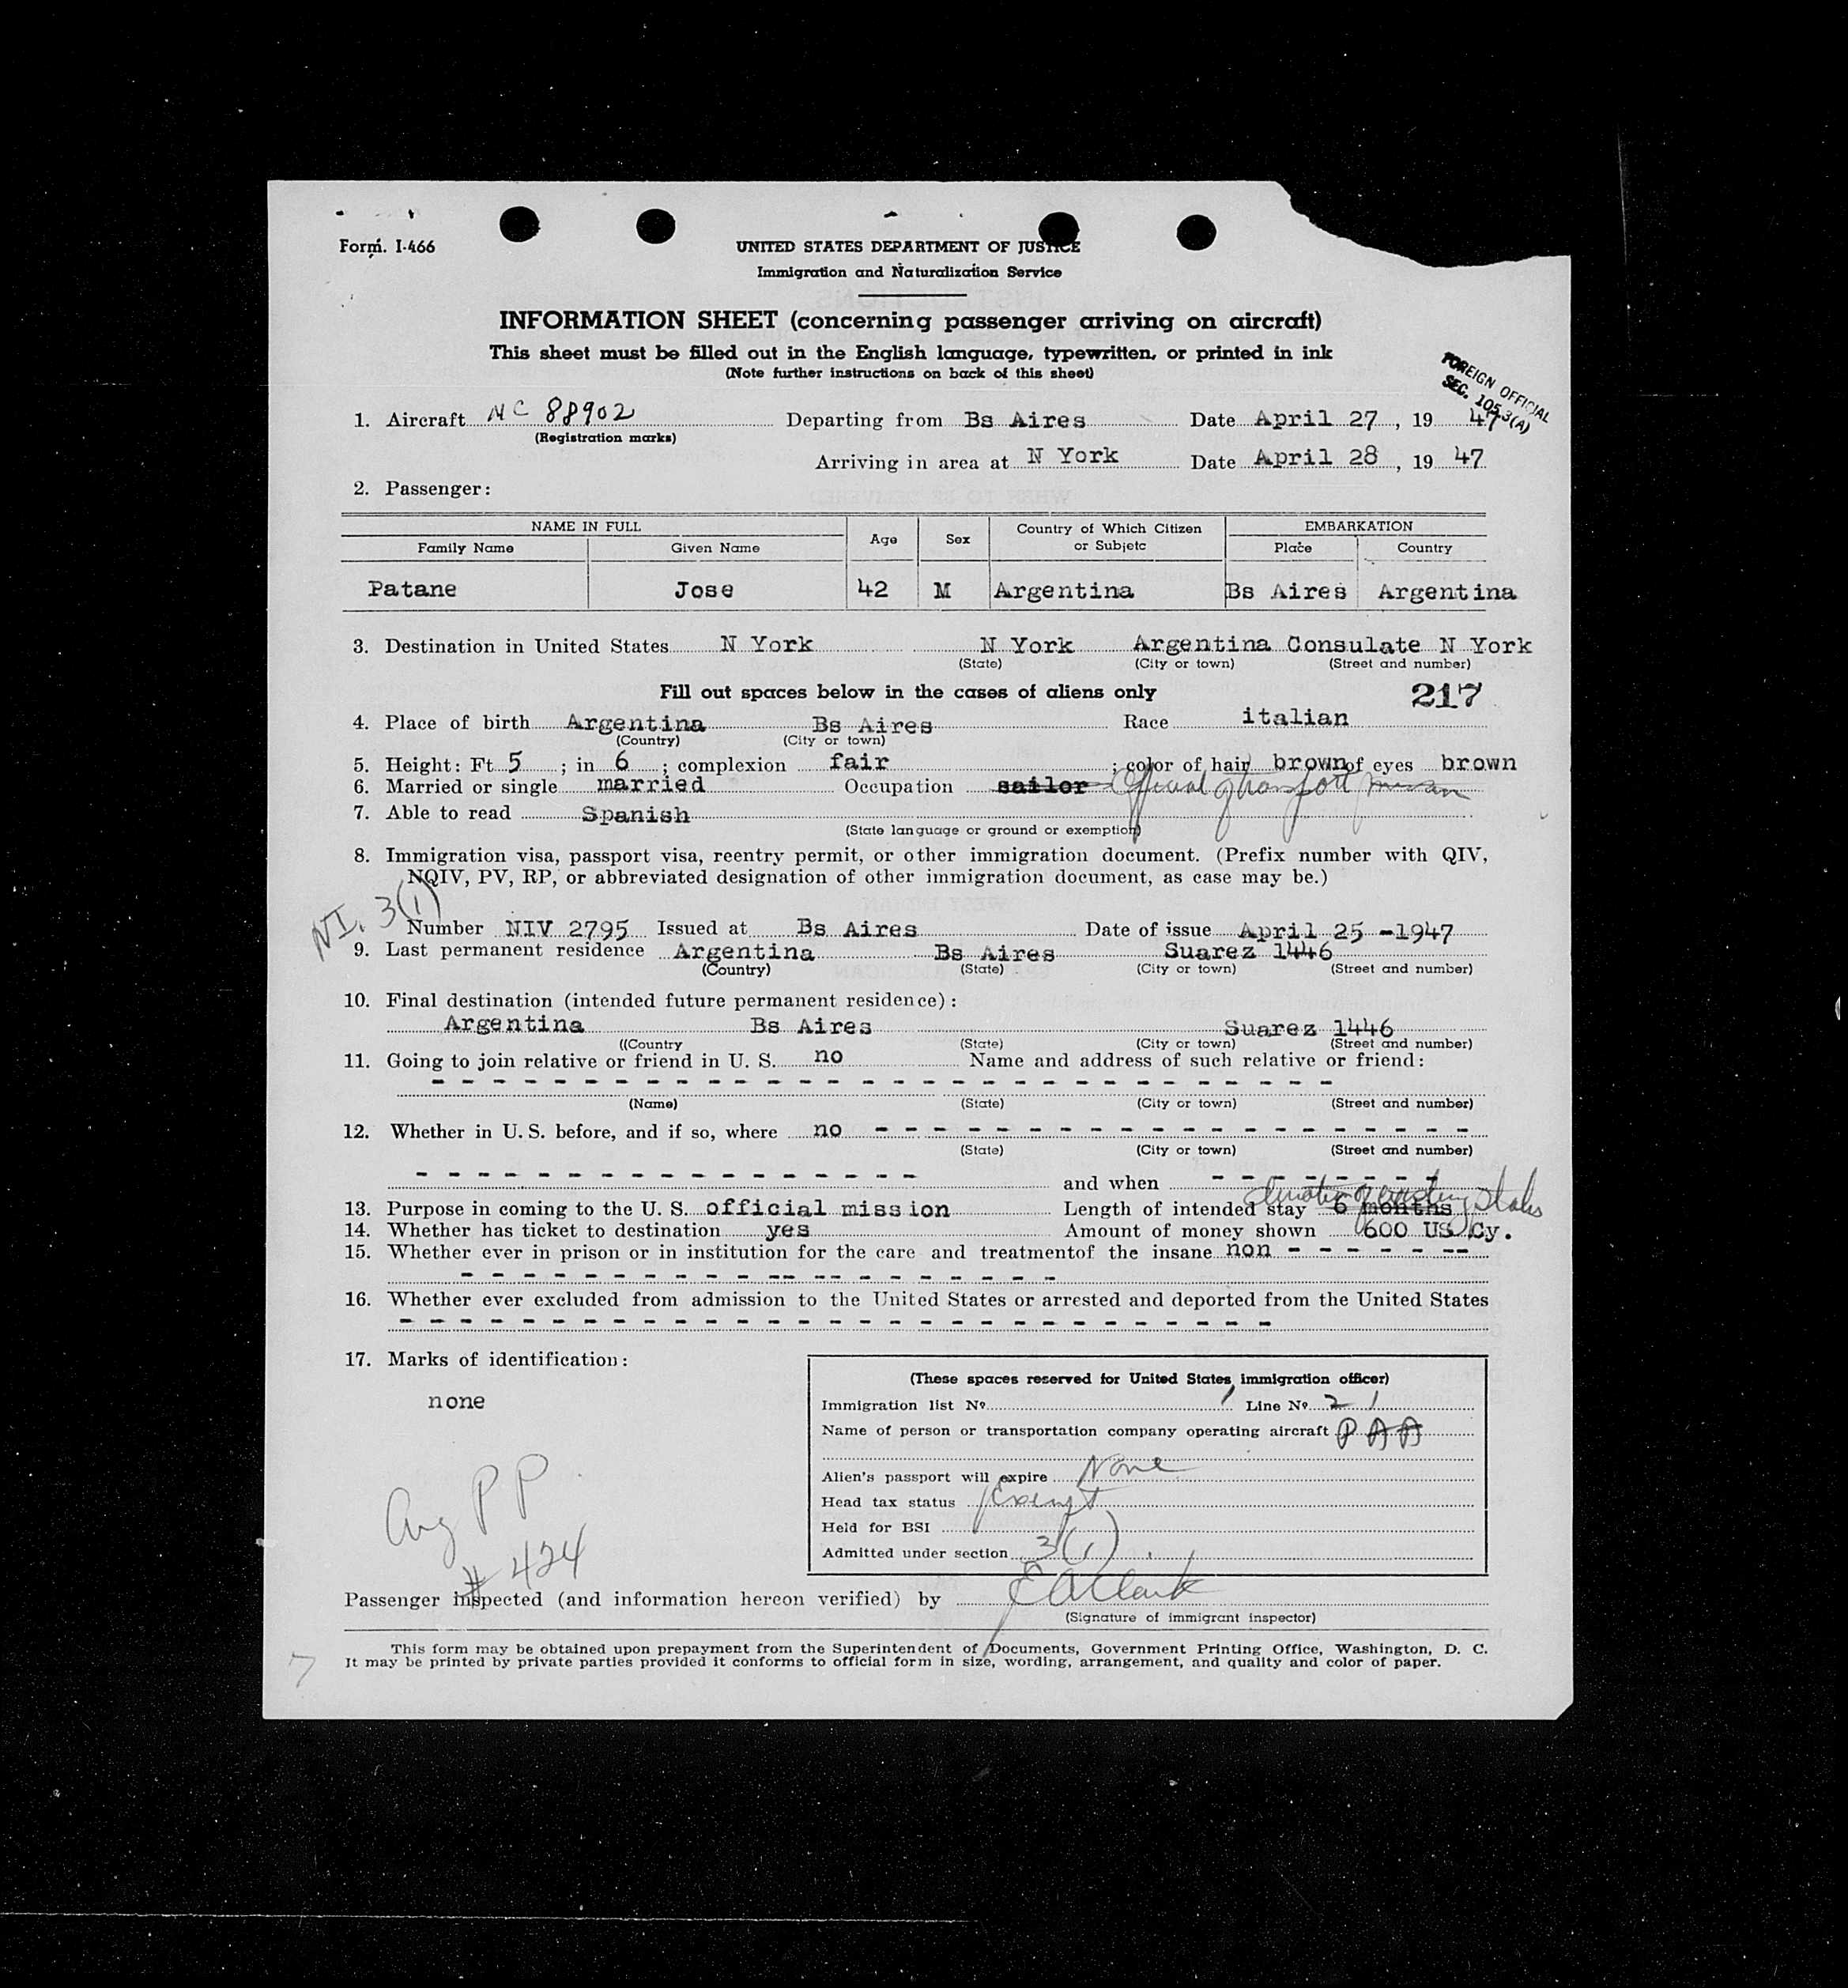 Form. I-466
UNITED STATES DEPARTMENT OF JUSTICE
Immigration and Naturalization Service
INFORMATION SHEET (concerning passenger arriving on aircraft)
This sheet must be filled out in the English language, typewritten, or printed in ink
(Note further instructions on back of this sheet)
FOREIGN OFFICIAL
SEC. 105.3(A)
1. Aircraft NC 88902 Departing from Bs Aires Date April 27, 19 47
(Registration marks)
Arriving in area at N York Date April 28, 19 47
2. Passenger:
NAME IN FULL Age Sex Country of Which Citizen or Subjetc EMBARKATION
Family Name Given Name Place Country
Patane Jose 42 M Argentina Bs Aires Argentina
3. Destination in United States N York N York Argentina Consulate N York
(State) (City or town) (Street and number)
Fill out spaces below in the cases of aliens only 217
4. Place of birth Argentina Bs Aires Race italian
(Country) (City or town)
5. Height: Ft 5 ; in 6 ; complexion fair ; color of hair brown of eyes brown
6. Married or single married Occupation sailor Official of transport
7. Able to read Spanish
(State language or ground or exemption)
8. Immigration visa, passport visa, reentry permit, or other immigration document. (Prefix number with QIV,
NQIV, PV, RP, or abbreviated designation of other immigration document, as case may be.)
NI. 3(1)
Number NIV 2795 Issued at Bs Aires Date of issue April 25 -1947
9. Last permanent residence Argentina Bs Aires Suarez 1446
(Country) (State) (City or town) (Street and number)
10. Final destination (intended future permanent residence):
Argentina Bs Aires Suarez 1446
((Country (State) (City or town) (Street and number)
11. Going to join relative or friend in U. S. no Name and address of such relative or friend:
- - - - - - - - - - - - - - - - - - - - - - - - - - - - - -
(Name) (State) (City or town) (Street and number)
12. Whether in U. S. before, and if so, where no - - - - - - - - - - - - - - - - - - - -
(State) (City or town) (Street and number)
- - - - - - - - - - - - - - - - - and when - - - - - - - -
duration of status
13. Purpose in coming to the U. S. official mission Length of intended stay 6 months
14. Whether has ticket to destination yes Amount of money shown 600 US Cy.
15. Whether ever in prison or in institution for the care and treatmentof the insane non - - - - - --
- - - - - - - - - - -- -- - - - - - - -
16. Whether ever excluded from admission to the United States or arrested and deported from the United States
- - - - - - - - - - - - - - - - - - - - - - - - - - - - -
17. Marks of identification:
none
(These spaces reserved for United States immigration officer)
Immigration list Nº 1 Line Nº 21
Name of person or transportation company operating aircraft PAA
Alien's passport will expire None
Head tax status Exempt
Held for BSI
Admitted under section 3(1)
Arg PP
# 424
Passenger inspected (and information hereon verified) by E A Clark
(Signature of immigrant inspector)
This form may be obtained upon prepayment from the Superintendent of Documents, Government Printing Office, Washington, D. C.
It may be printed by private parties provided it conforms to official form in size, wording, arrangement, and quality and color of paper.
7